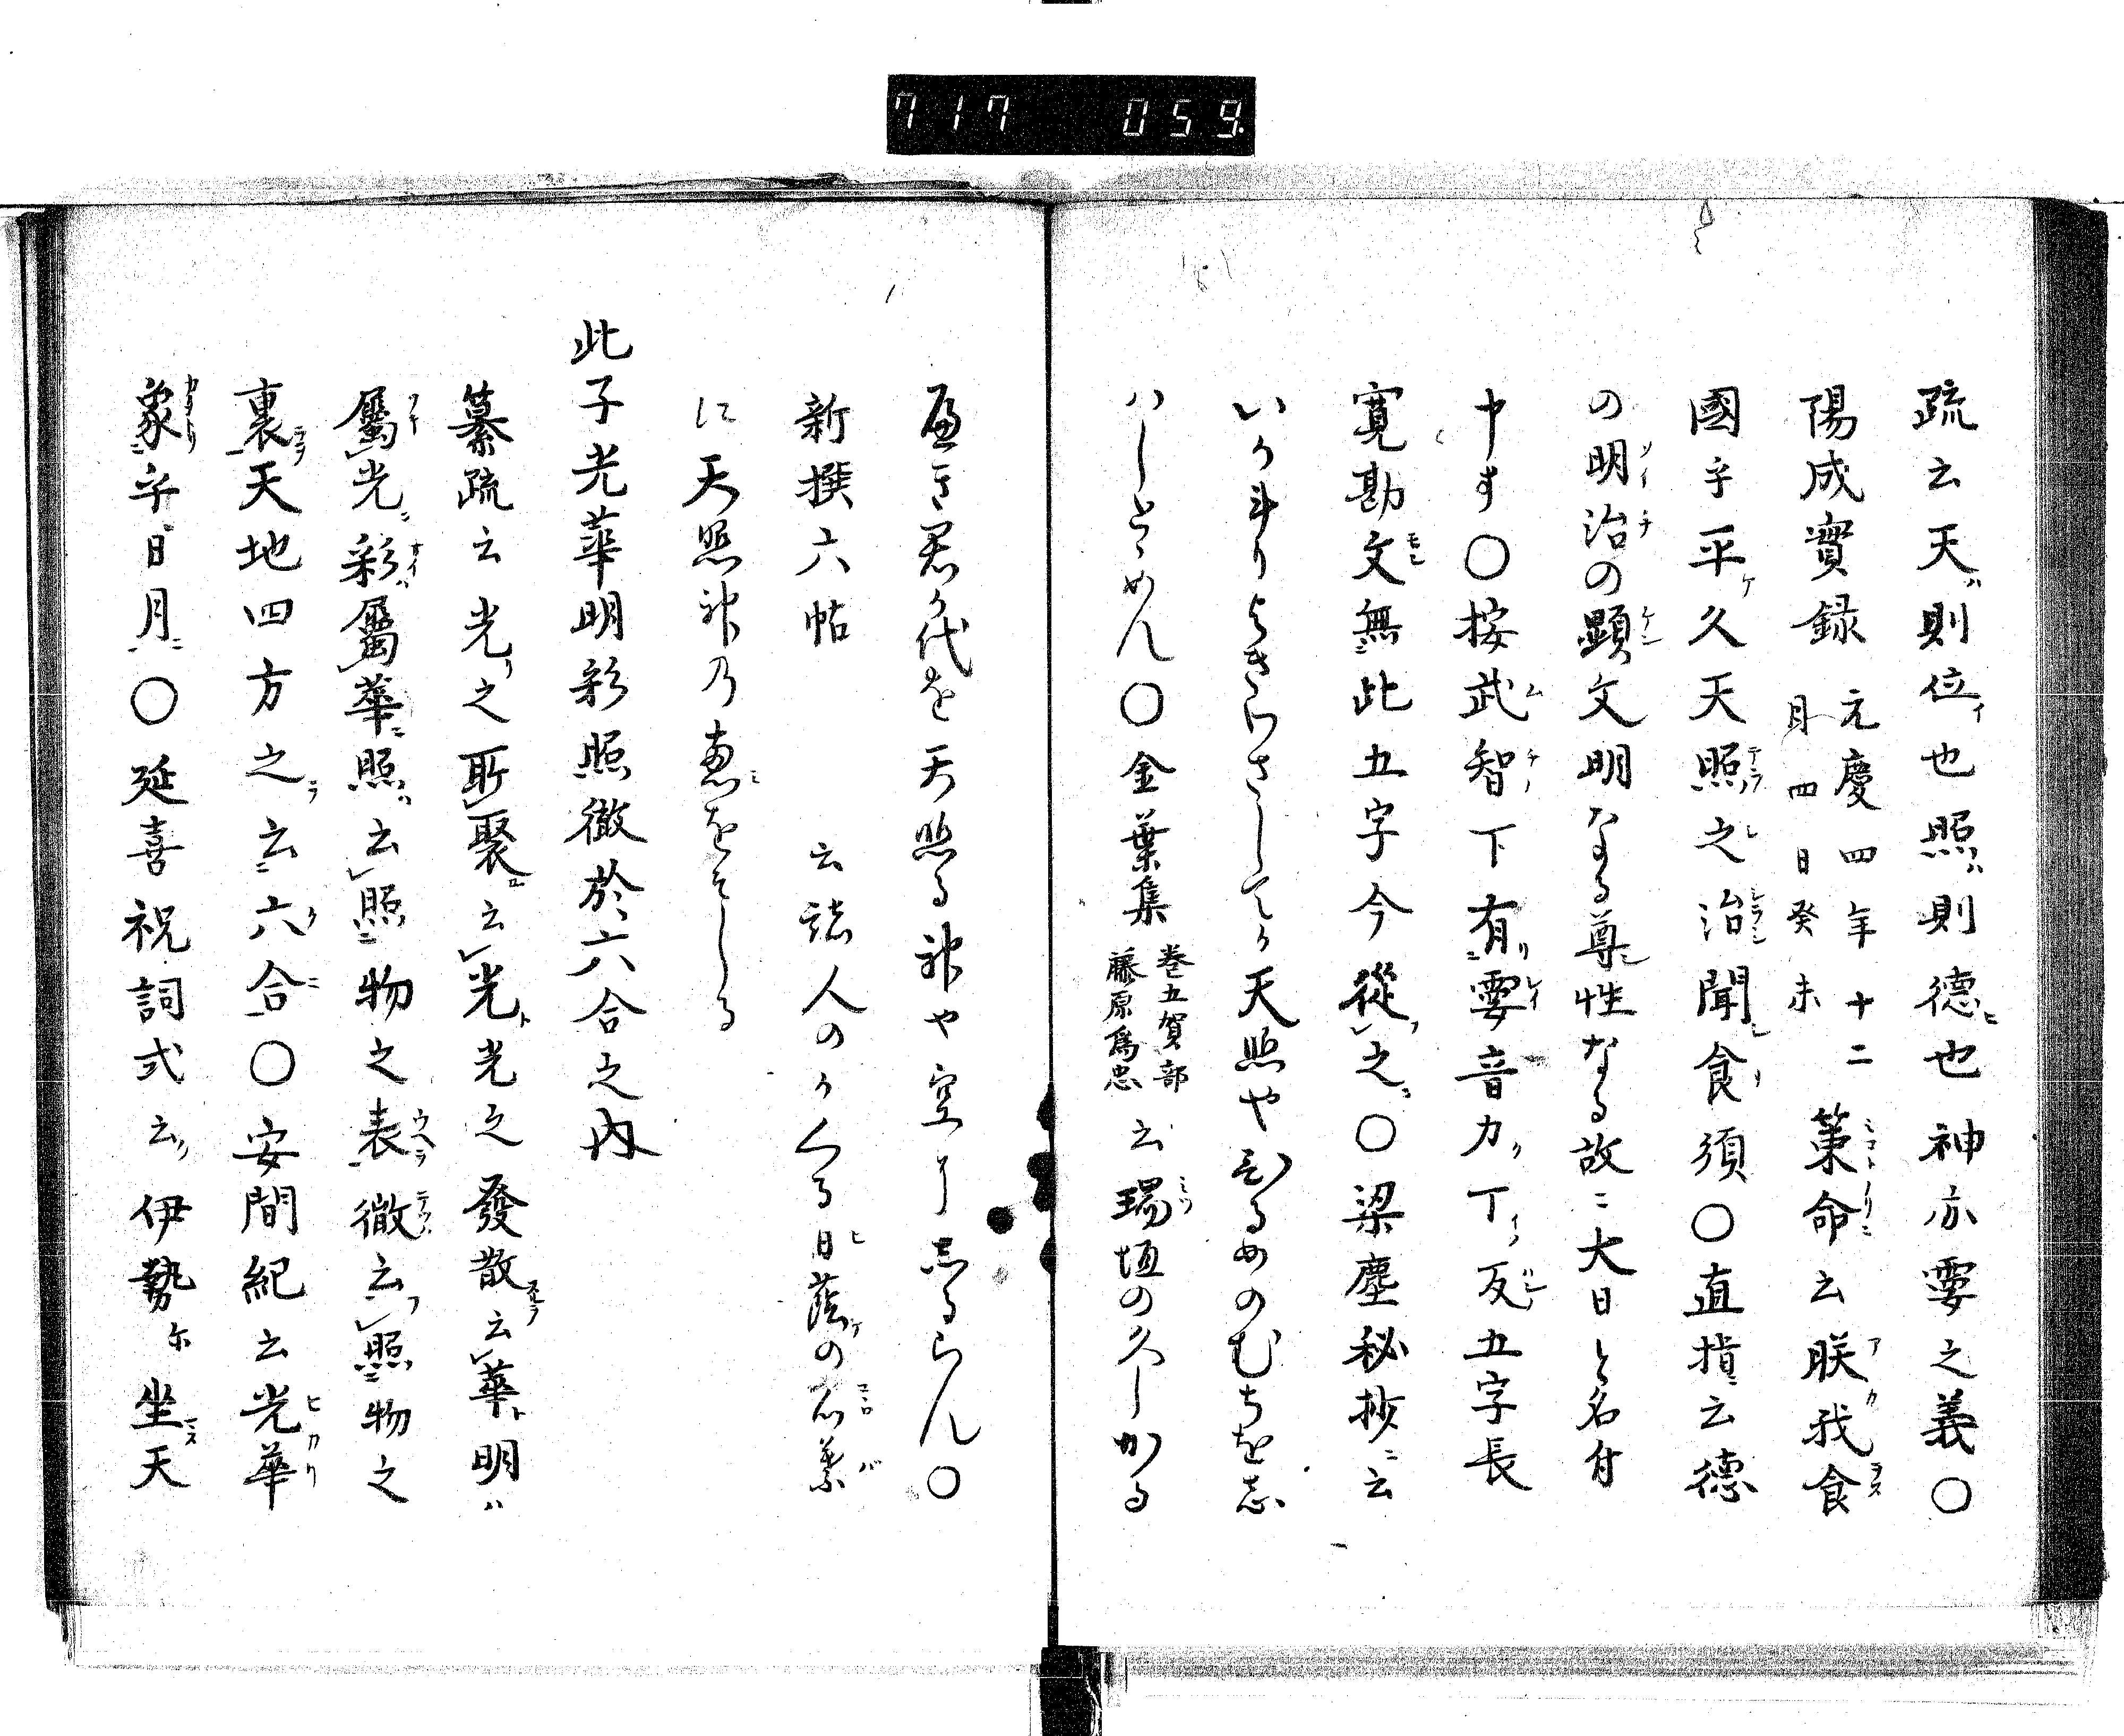 717 059
疏云天ハ則位イ也照ハ則德ヒ也神亦霊之義○
陽成實録 元慶四年十二
月四日癸未 策命云朕我食
國乎平ケ久天照之治聞食須○直指ニ云德
の明治の顯文明なる尊性なる故ニ大日と名付
申す○按武智下有霊音力丁反五字長
寛勘文無此五字今從之○梁塵秘抄ニ云
いか斗りよきわさしてか天照やひるめのむちを志
ハしとゝめん○金葉集 巻五賀部
藤原爲忠 云瑞垣の久しかる
へき君か代を天照る神や空にしるらん○
新撰六帖 云諸人のかくる日蔭の心葉
に天照神の恵をそしる
此子光華明彩照徹於六合之内
纂疏云光之所聚云光ト光之發散云華ト明ハ
屬光彩ハ屬華照ハ云照物之表徹云照物之
裏天地四方之云六合○安間紀云光華
象乎日月○延喜祝詞式云伊勢尓坐天